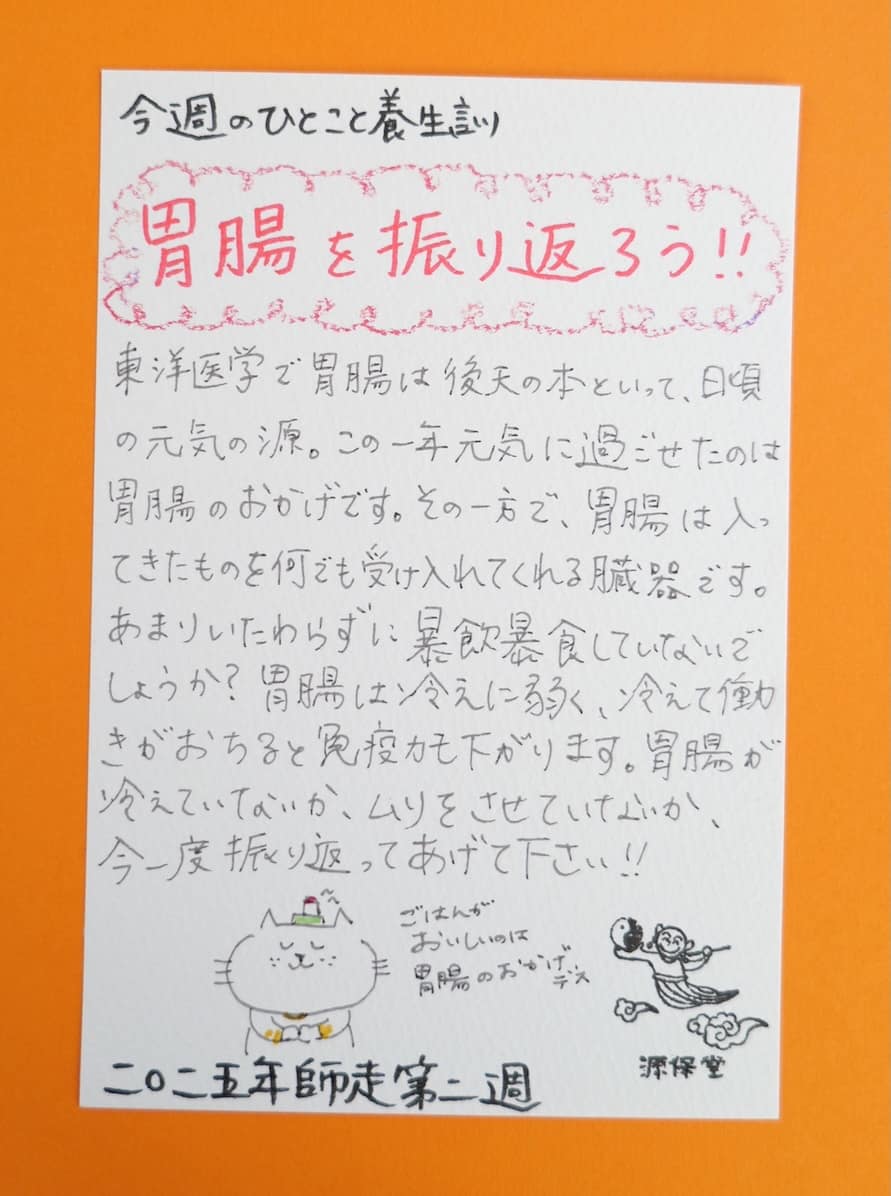 今週のひとこと養生訓
胃腸を振り返ろう!!
東洋医学で胃腸は後天の本といって、日頃
の元気の源。この一年元気に過ごせたのは
胃腸のおかげです。その一方で、胃腸は入っ
てきたものを何でも受け入れてくれる臓器です。
あまりいたわらずに暴飲暴食していないで
しょうか?胃腸は冷えに弱く、冷えて働
きがおちると免疫力も下がります。胃腸が
冷えていないか、ムリをさせていないか、
今一度振り返ってあげて下さい!!
ごはんが
おいしいのは
胃腸のおかげ
デス
源保堂
二〇二五年師走第二週